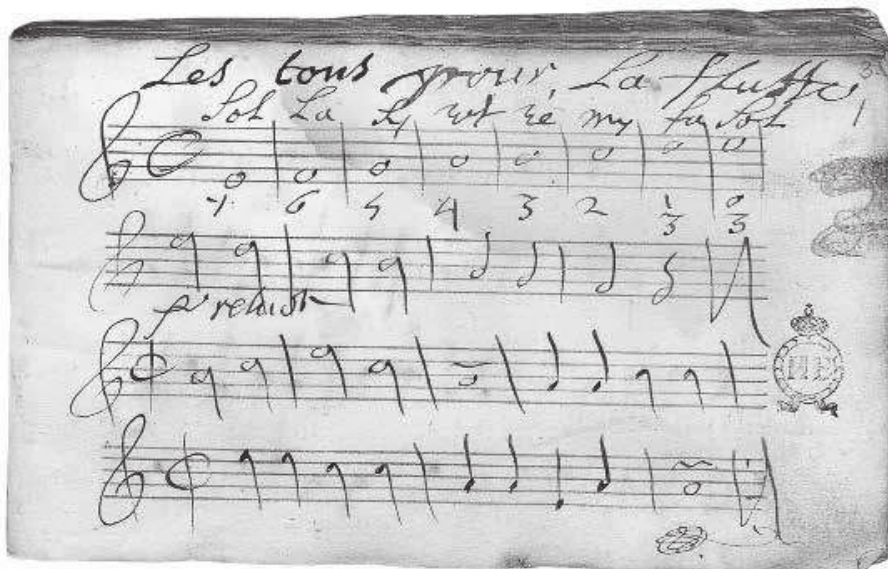 Les tons pour La fluste
3
Sol La sy ut re my fa sol
1
7 6 5 4 3 2 1/3 0/3
prelude